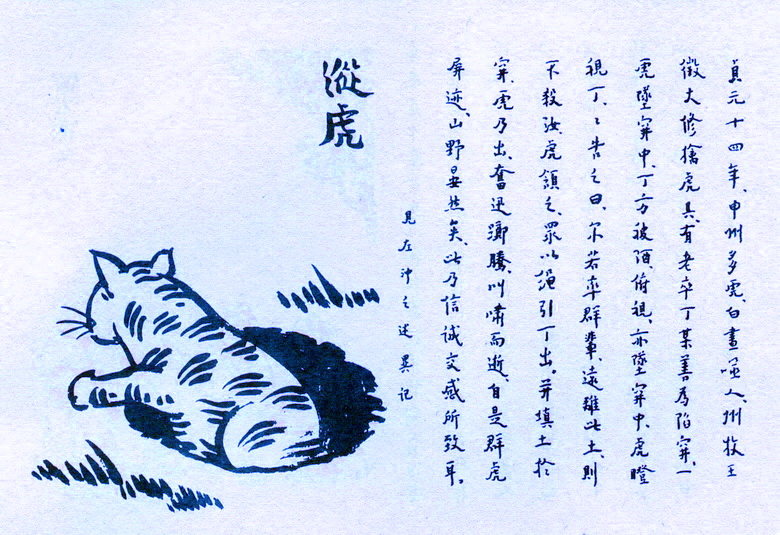 貞元十四年、申州多虎、白晝噬人、州牧王
徵大修擒虎具、有老卒丁某善為陷穽、一
虎墜穽中、丁方被酒、俯視、亦墜穽中、虎瞪
視丁、〻告之曰、尔若率群輩、遠離此土、則
不殺汝、虎頷之、眾以繩引丁出。并填土於
穽、虎乃出、奮迅躑騰、叫嘯而逝、自是群虎
屏迹、山野晏然矣、此乃信誠交感所致耳。
見左冲之述異記
縱虎